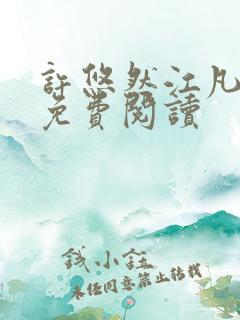 許悠然江凡
免費閱讀
錢小鈺
未經同意禁止轉載